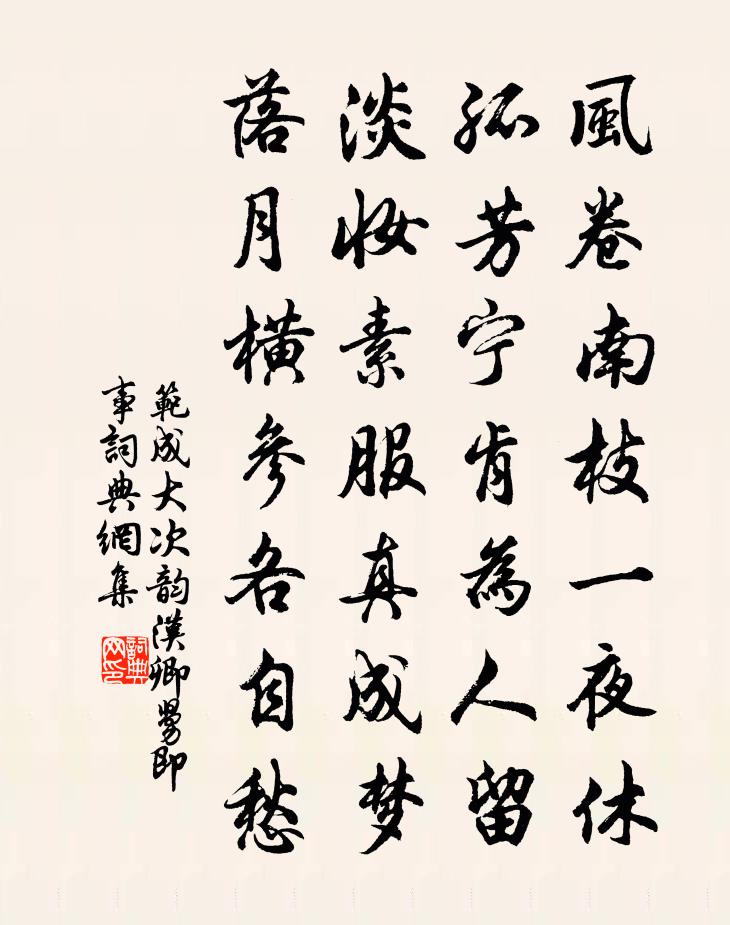 風卷南枝一夜休
孤芳宁肯為人留
淡妝素服真成梦
落月橫參各自愁
範成大次韵漢卿舅即
事詞典網集
詞典
网印